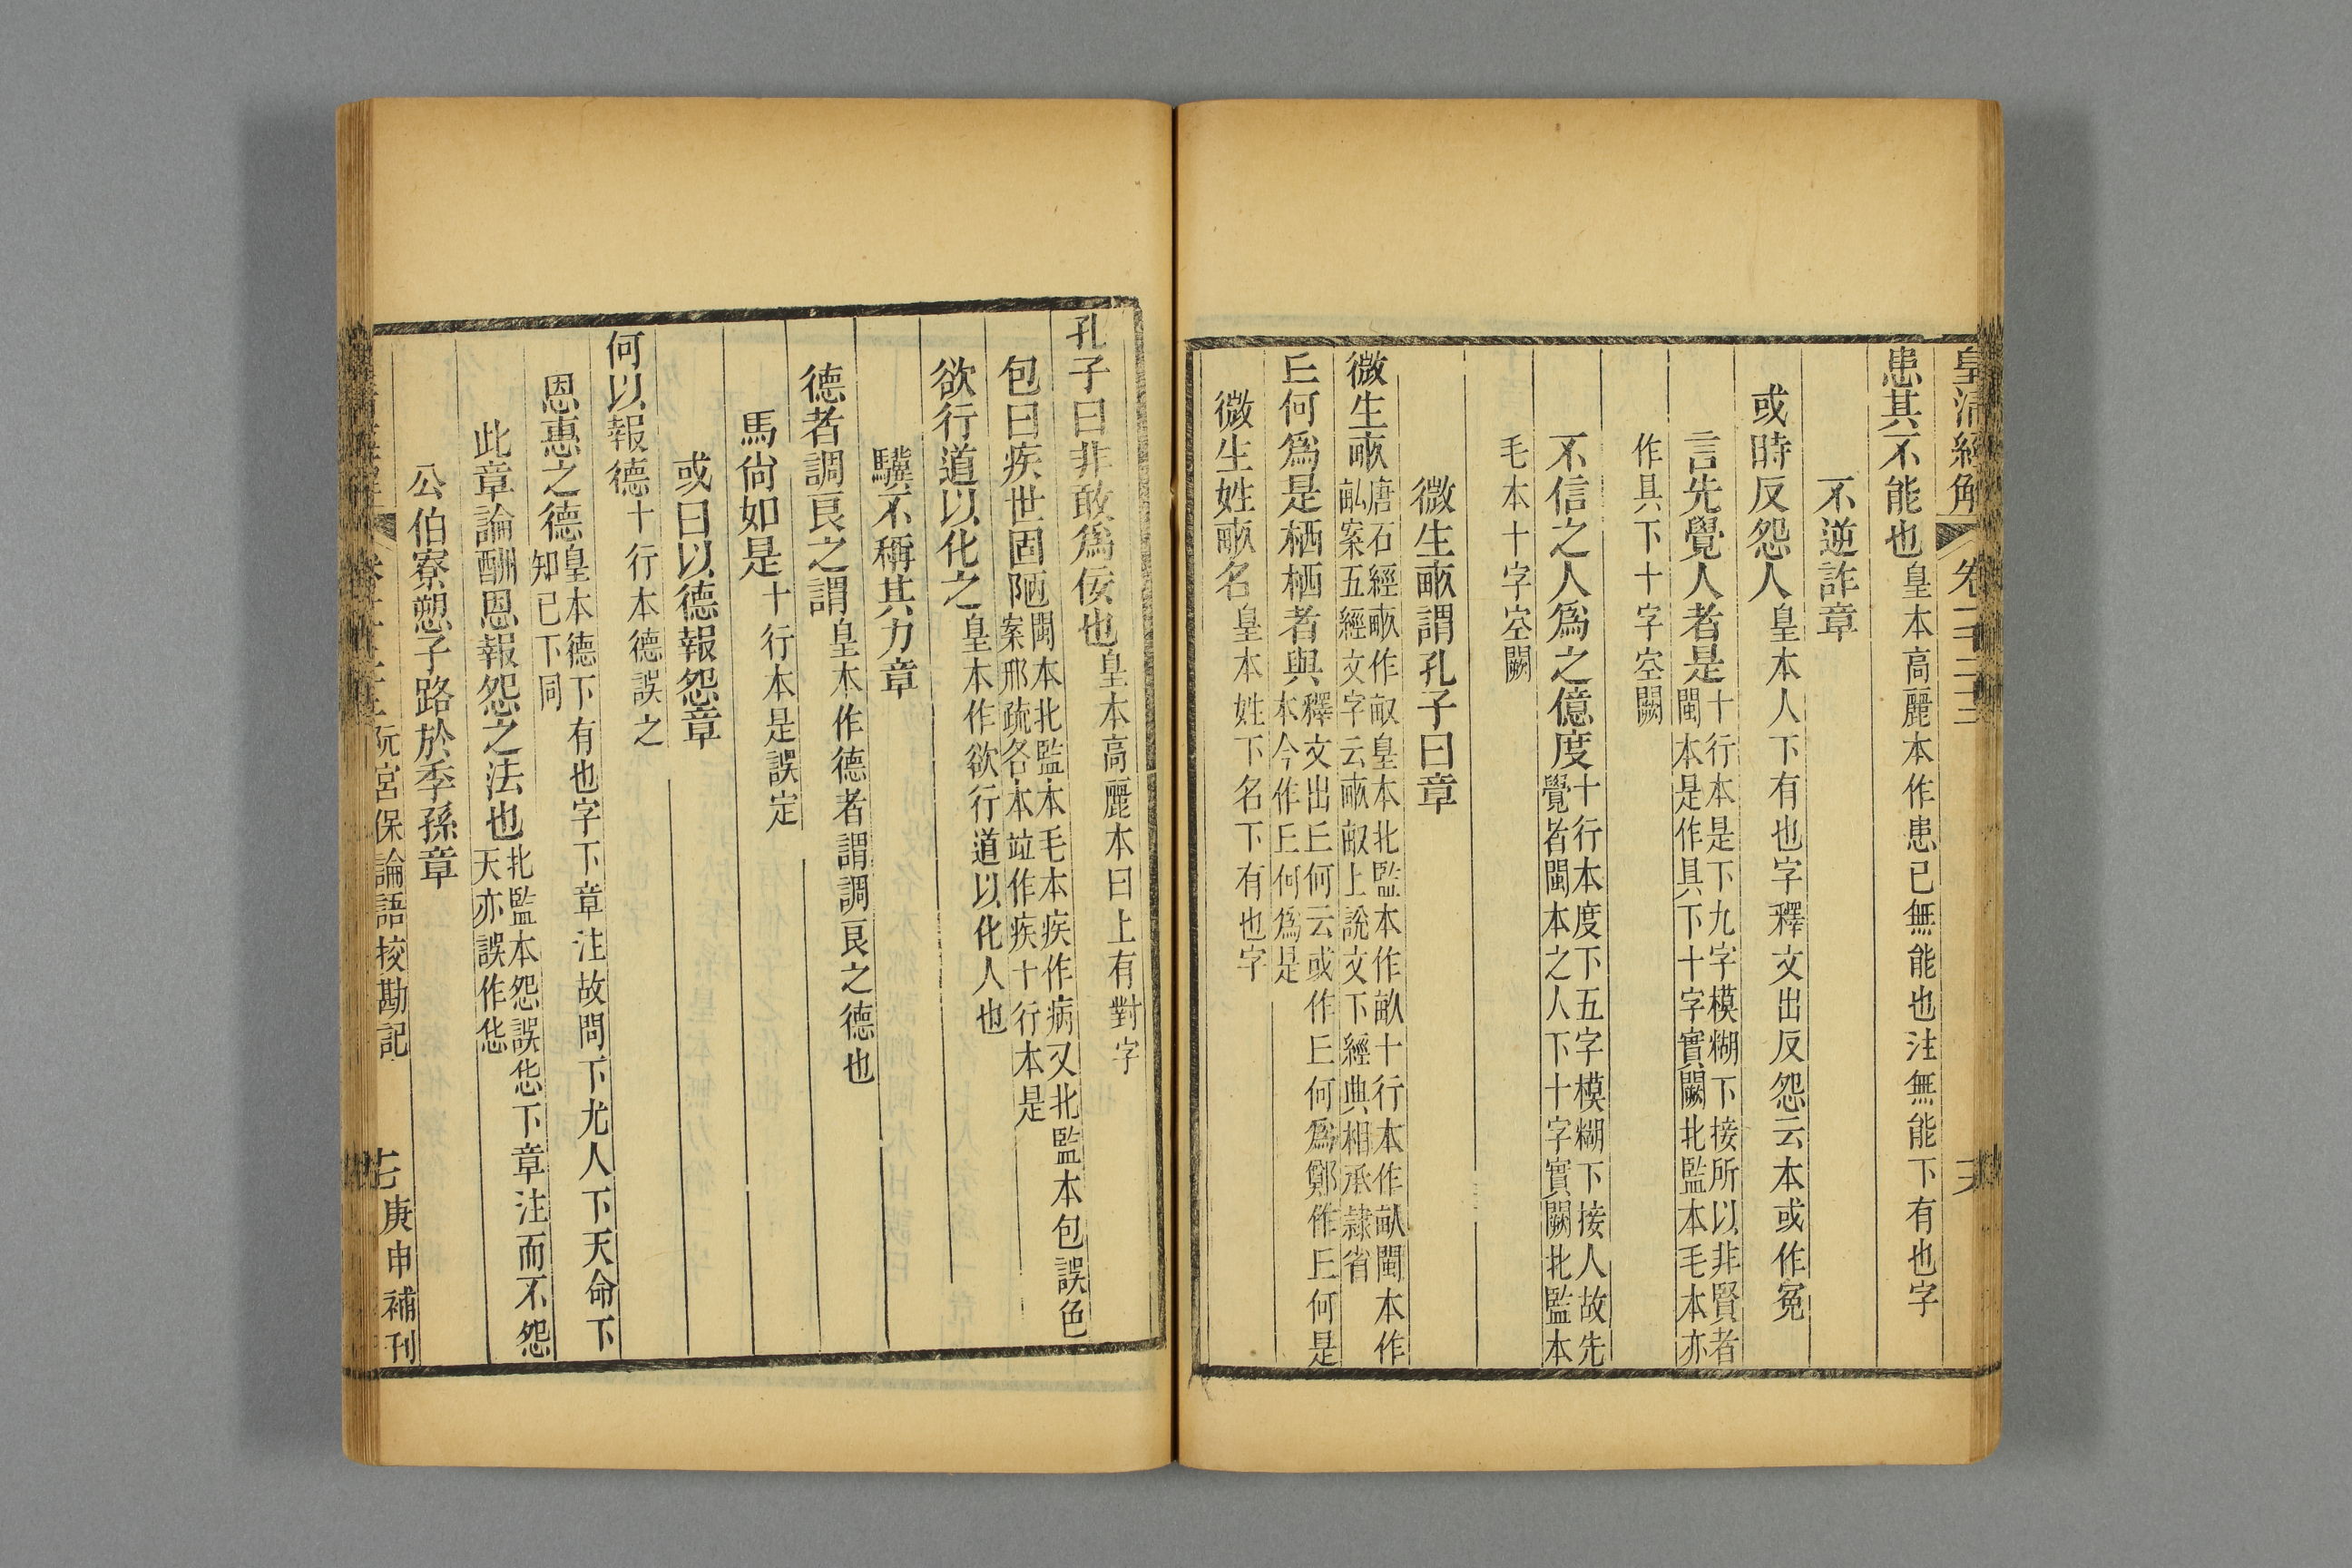 皇清經解 卷一千二十三 六
患其不能也皇本高麗本作患己無能也注無能下有也字
不逆詐章
或時反怨人皇本人下有也字釋文出反怨云本或作冤
言先覺人者是十行本是下九字模糊下接所以非賢者
閩本是作具下十字實闕北監本毛本亦
作具下十字空闕
不信之人爲之億度十行本度下五字模糊下接人故先
覺者閩本之人下十字實闕北監本
毛本十字空闕
微生畝謂孔子曰章
微生畝唐石經畝作畞皇本北監本作畝十行本作畒閩本作
畆案五經文字云畝畞上說文下經典相承隸省
丘何爲是栖栖者與釋文出丘何云或作丘何爲鄭作丘何是
本今作丘何爲是
微生姓畝名皇本姓下名下有也字
孔子曰非敢爲佞也皇本高麗本曰上有對字
包曰疾世固陋閩本北監本毛本疾作病又北監本包誤色
案邢疏各本竝作疾十行本是
欲行道以化之皇本作欲行道以化人也
驥不稱其力章
德者調良之謂皇本作德者謂調良之德也
馬尙如是十行本是誤定
或曰以德報怨章
何以報德十行本德誤之
恩惠之德皇本德下有也字下章注故問下尤人下天命下
知己下同
此章論酬恩報怨之法也北監本怨誤㤪下章注而不怨
天亦誤作㤪
公伯寮愬子路於季孫章
阮宮保論語挍勘記 庚申補刊